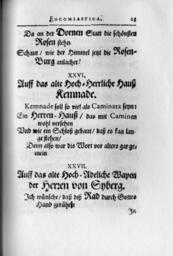 ENCOMIASTICA. 25
Da an der Dornen Statt die schönsten
Rosen stehn.
Schaut / wie der Himmel jetzt die Rosen-
Burg anlachet!
XXVI.
Auff das alte Hoch-Herrliche Hauß
Kemnade.
Kemnade soll so viel als Caminata seyn:
Ein Herren-Hauß / das mit Caminen
wohl versehen
Und wie ein Schloß gebaut / daß es kan lan-
ge stehen /
Denn also war diß Wort vor alters gar ge-
mein.
XXVII.
Auff das alte Hoch-Adeliche Wapen
der Herren von Spberg.
Ich wünsche / daß diß Rad durch Gottes
Hand gerühret
In